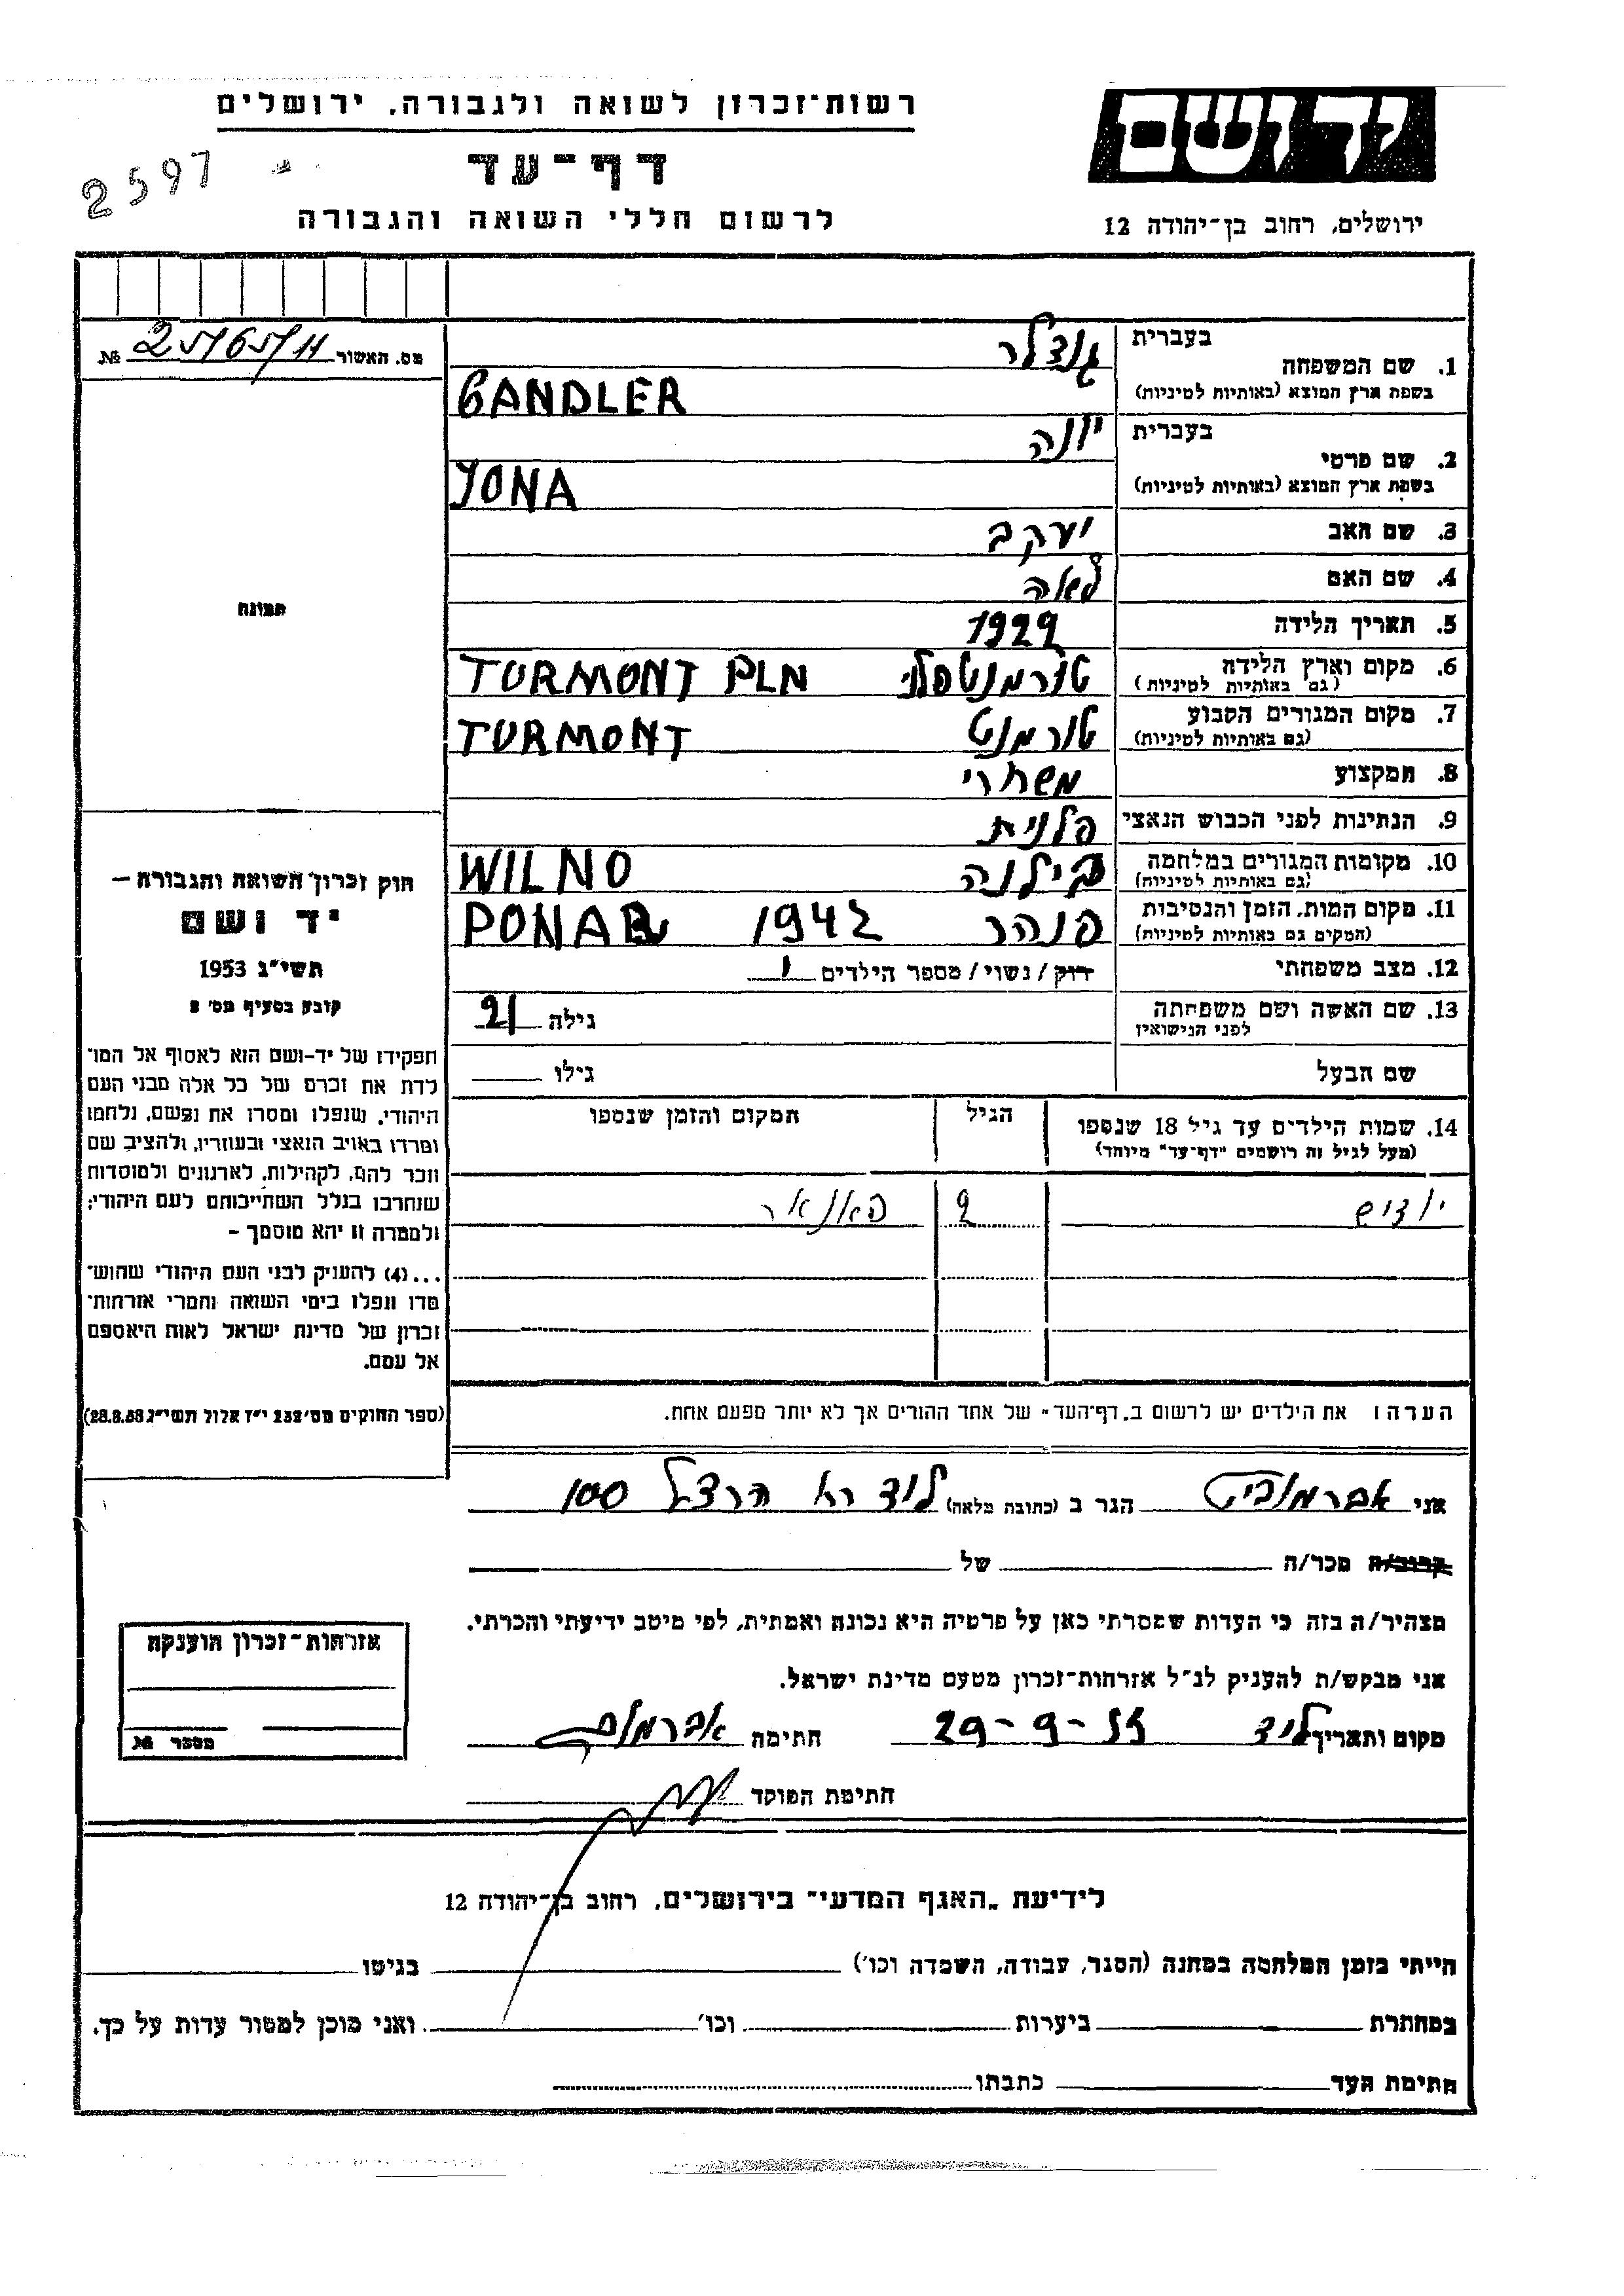 רשות־זכרון לשואה ולגבורה, ירושלים
יד ושם
2597
דף־עד
לרשום חללי השואה והגבורה
ירושלים, רחוב בן־יהודה 12
מס. האשור № 25/65/11
1. שם המשפחה
בעברית
גנדלר
בשפת ארץ המוצא (באותיות לטיניות)
GANDLER
2. שם פרטי
בעברית
יונה
בשפת ארץ המוצא (באותיות לטיניות)
YONA
3. שם האב
יעקב
4. שם האם
לאה
5. תאריך הלידה
1929
6. מקום וארץ הלידה
(גם באותיות לטיניות)
טורמנט פלני TURMONT PLN
7. מקום המגורים הקבוע
(גם באותיות לטיניות)
טורמנט TURMONT
8. המקצוע
משחרי
9. הנתינות לפני הכבוש הנאצי
פלנית
10. מקומות המגורים במלחמה
(גם באותיות לטיניות)
וילנה WILNO
11. מקום המות, הזמן והנסיבות
(המקים גם באותיות לטיניות)
פנהר 1942
12. מצב משפחתי
רוק / נשוי / מספר הילדים 1
13. שם האשה ושם משפחתה
לפני הנישואין
גילה 21
שם הבעל
גילו
14. שמות הילדים עד גיל 18 שנספו
(מעל לגיל זה רושמים "דף־עד" מיוחד)
הגיל
המקום והזמן שנספו
2 פאנאר
הערה: את הילדים יש לרשום ב„דף־העד" של אחד ההורים אך לא יותר מפעם אחת.
תמונה
חוק זכרון השואה והגבורה —
יד ושם
תשי"ג 1953
קובע בסעיף מס' 2
תפקידו של יד־ושם הוא לאסוף אל המו־
לדת את זכרם של כל אלה מבני העם
היהודי, שנפלו ומסרו את נפשם, נלחמו
ומרדו באויב הנאצי ובעוזריו, ולהציב שם
וזכר להם, לקהילות, לארגונים ולמוסדות
שנחרבו בגלל השתייכותם לעם היהודי;
ולמטרה זו יהא מוסמך –
...(4) להעניק לבני העם היהודי שהוש־
מדו ונפלו בימי השואה והמרי אזרחות־
זכרון של מדינת ישראל לאות היאספם
אל עמם.
(ספר החוקים מס' 132 י"ז אלול תשי"ג 28.8.53)
אני אברמוביץ הגר ב (כתובת מלאה) לוד רח הרצל 100
קרוב/ה מכר/ה של
מצהיר/ה בזה כי העדות שמסרתי כאן על פרטיה היא נכונה ואמתית, לפי מיטב ידיעתי והכרתי.
אני מבקש/ת להעניק לנ"ל אזרחות־זכרון מטעם מדינת ישראל.
מקום ותאריך לוד 29-9-55 חתימה
חתימת הפוקד
אזרחות־זכרון הוענקה
מספר №
לידיעת „האגף המדעי" בירושלים, רחוב בן־יהודה 12
הייתי בזמן המלחמה במחנה (הסגר, עבודה, השמדה וכו') בגיטו
במחתרת ביערות וכו' ואני מוכן למסור עדות על כך.
חתימת העד כתבתו